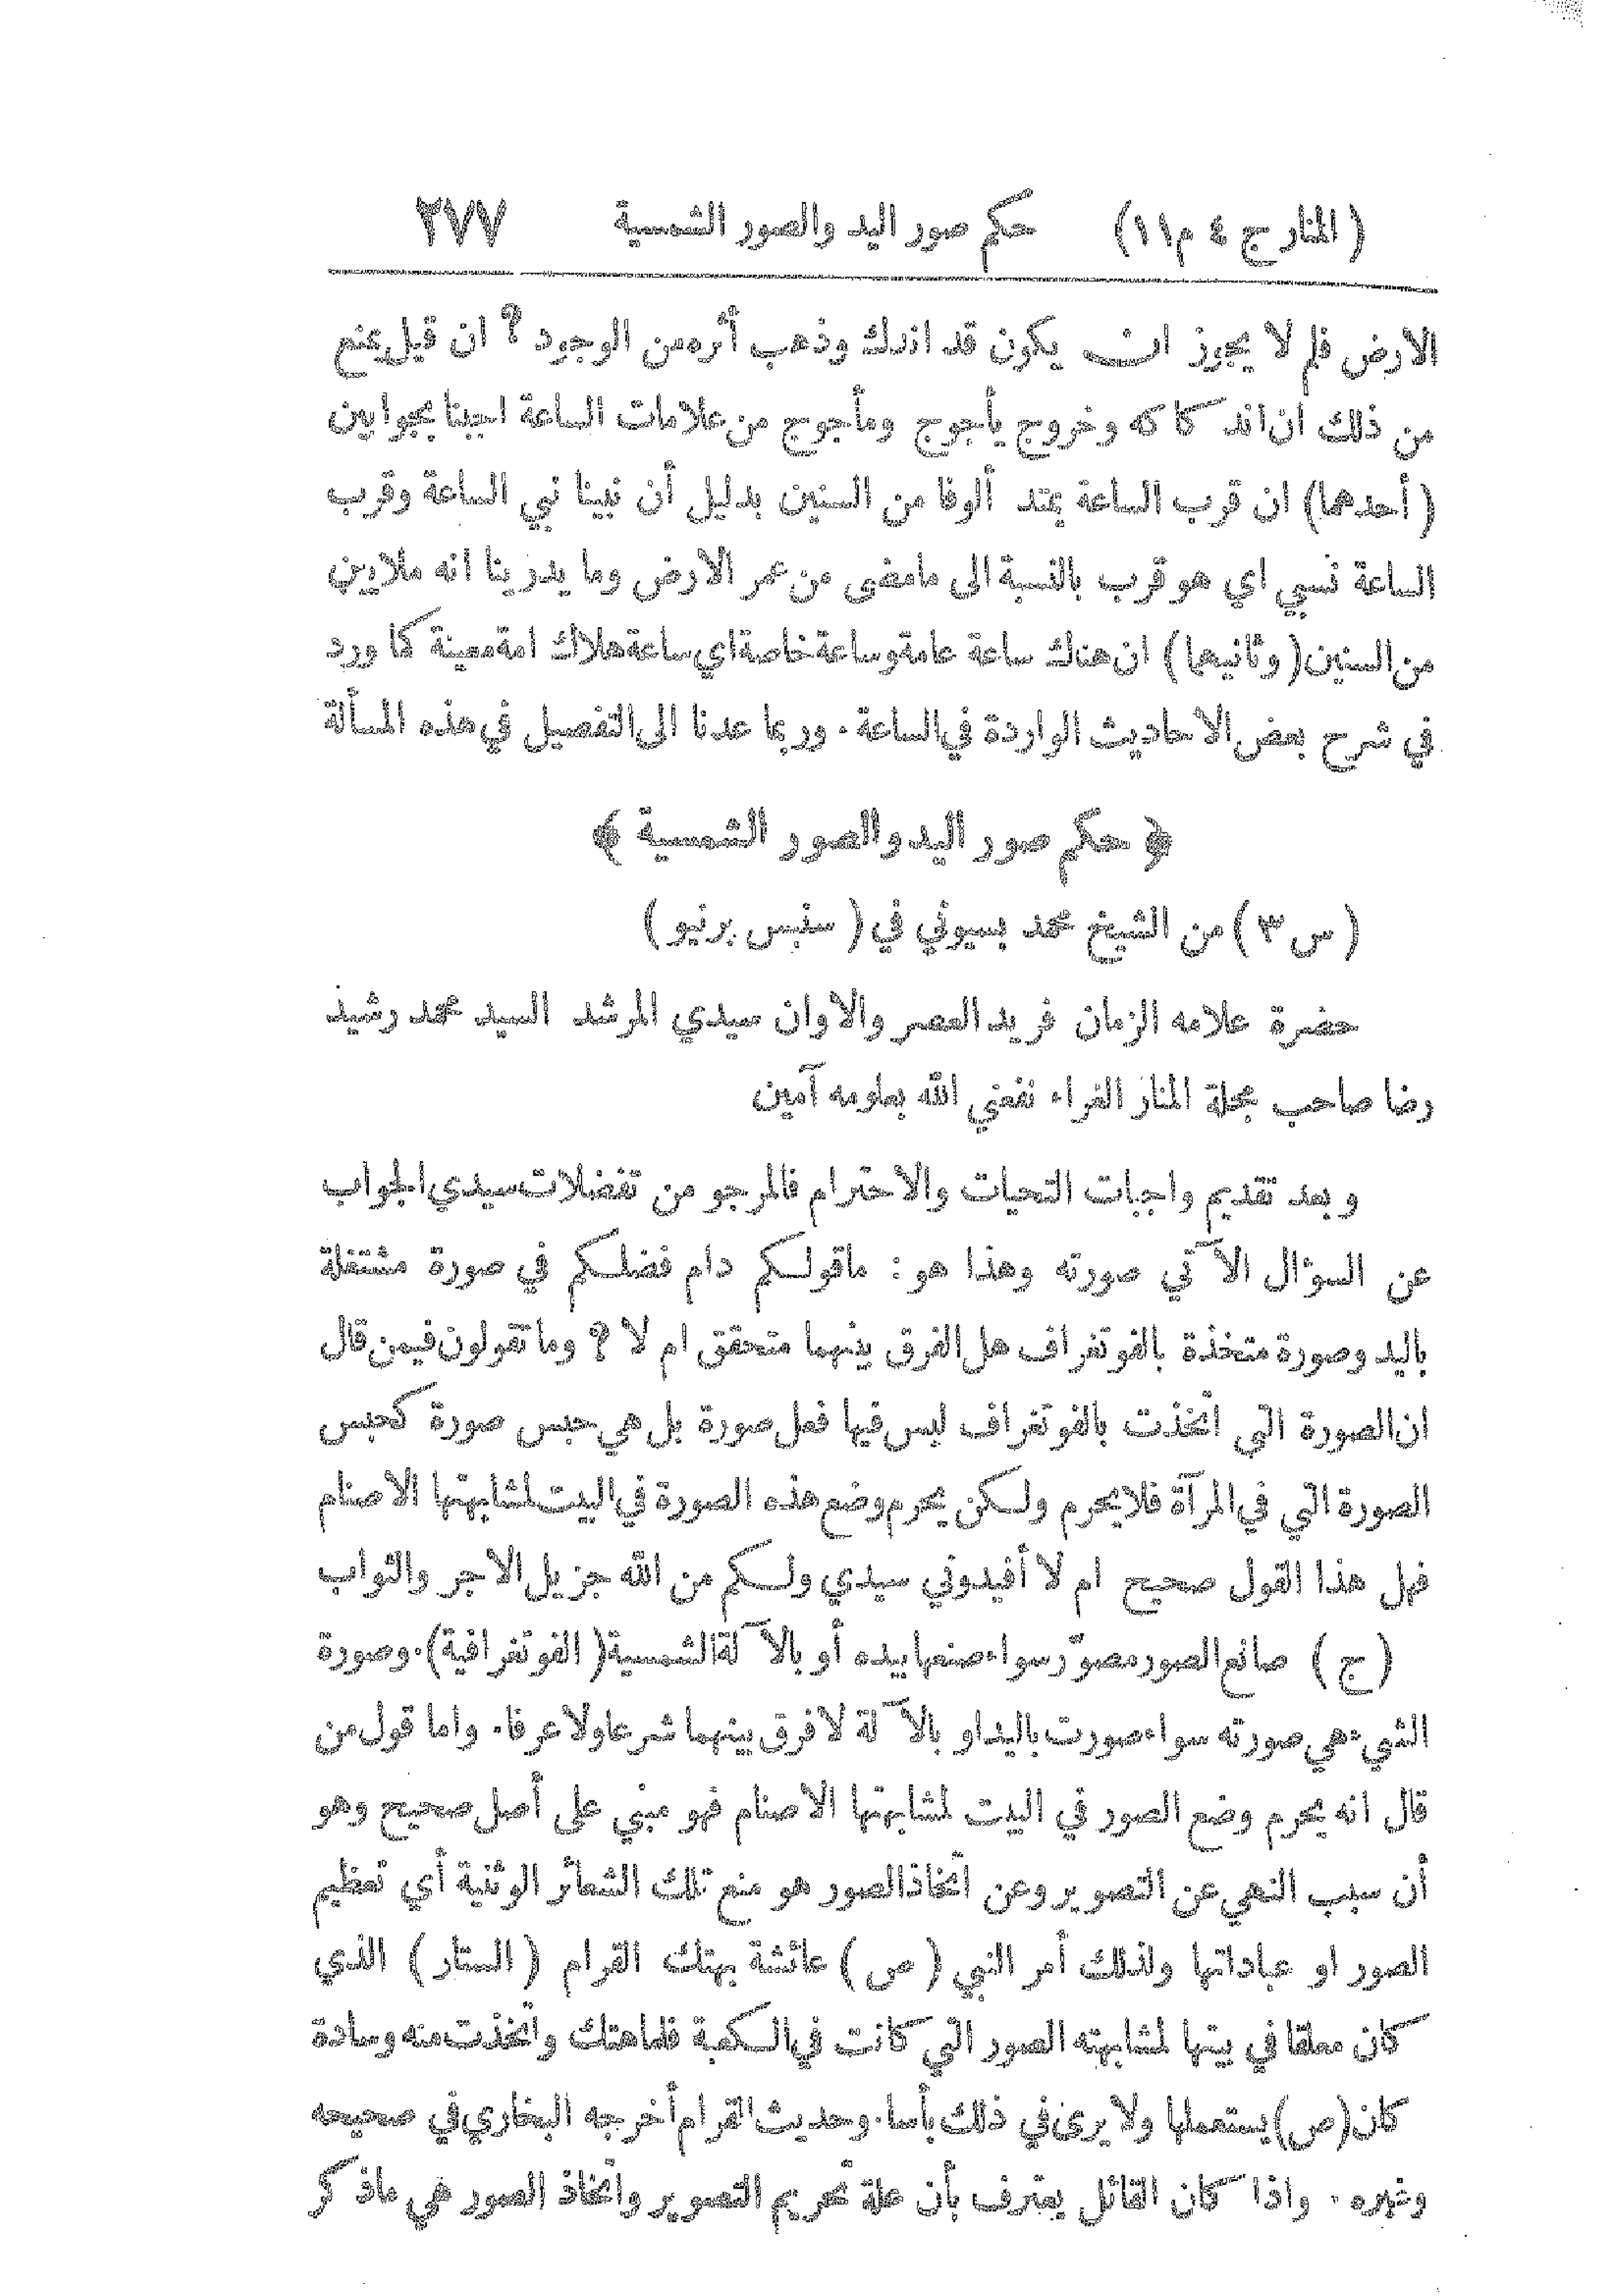 (المنار ج ٤ م ١١) حكم صور اليد والصور الشمسية ٢٧٧
الارض فلم لا يجوز ان يكون قد اندك وذهب أثره من الوجود ؟ ان قيل يمنع
من ذلك ان اندكاكه وخروج يأجوج ومأجوج من علامات الساعة اجبنا بجوابين
(أحدهما) ان قرب الساعة يمتد ألوفا من السنين بدليل أن نبينا نبي الساعة وقرب
الساعة نسبي اي هو قرب بالنسبة الى مامضى من عمر الارض وما يدرينا انه ملايين
من السنين (وثانيهما) ان هناك ساعة عامة وساعة خاصة اي ساعة هلاك امة معينة كما ورد
في شرح بعض الاحاديث الواردة في الساعة . وربما عدنا الى التفصيل في هذه المسألة
﴿ حكم صور اليد والصور الشمسية ﴾
(س ٣) من الشيخ محمد بسيوني في (سنبس برنيو)
حضرة علامه الزمان فريد العصر والاوان سيدي المرشد السيد محمد رشيد
رضا صاحب مجلة المنار الغراء نفعني الله بعلومه آمين
وبعد تقديم واجبات التحيات والاحترام فالمرجو من تفضلات سيدي الجواب
عن السؤال الآتي صورته وهذا هو : ماقولكم دام فضلكم في صورة مشتغلة
باليد وصورة متخذة بالفوتغراف هل الفرق بينهما متحقق ام لا ؟ وما تقولون فيمن قال
ان الصورة التي اتخذت بالفوتغراف ليس فيها فعل صورة بل هي حبس صورة كحبس
الصورة التي في المرآة فلا يحرم ولكن يحرم وضع هذه الصورة في البيت لمشابهتها الاصنام
فهل هذا القول صحيح ام لا أفيدوني سيدي ولكم من الله جزيل الاجر والثواب
(ج) صانع الصور مصوّر سواء صنعها بيده أو بالآلة الشمسية (الفوتغرافية) . وصورة
الشيء هي صورته سواء صورت باليد او بالآلة لا فرق بينهما شرعا ولا عرفا . واما قول من
قال انه يحرم وضع الصور في البيت لمشابهتها الاصنام فهو مبني على أصل صحيح وهو
أن سبب النهي عن التصوير وعن اتخاذ الصور هو منع تلك الشعائر الوثنية أي تعظيم
الصور او عباداتها ولذلك أمر النبي (ص) عائشة بهتك القرام (الستار) الذي
كان معلقا في بيتها لمشابهته الصور التي كانت في الكعبة فلما هتك واتخذت منه وسادة
كان (ص) يستعملها ولا يرى في ذلك بأسا . وحديث القرام أخرجه البخاري في صحيحه
وغيره . واذا كان القائل يعترف بأن علة تحريم التصوير واتخاذ الصور هي ماذكر